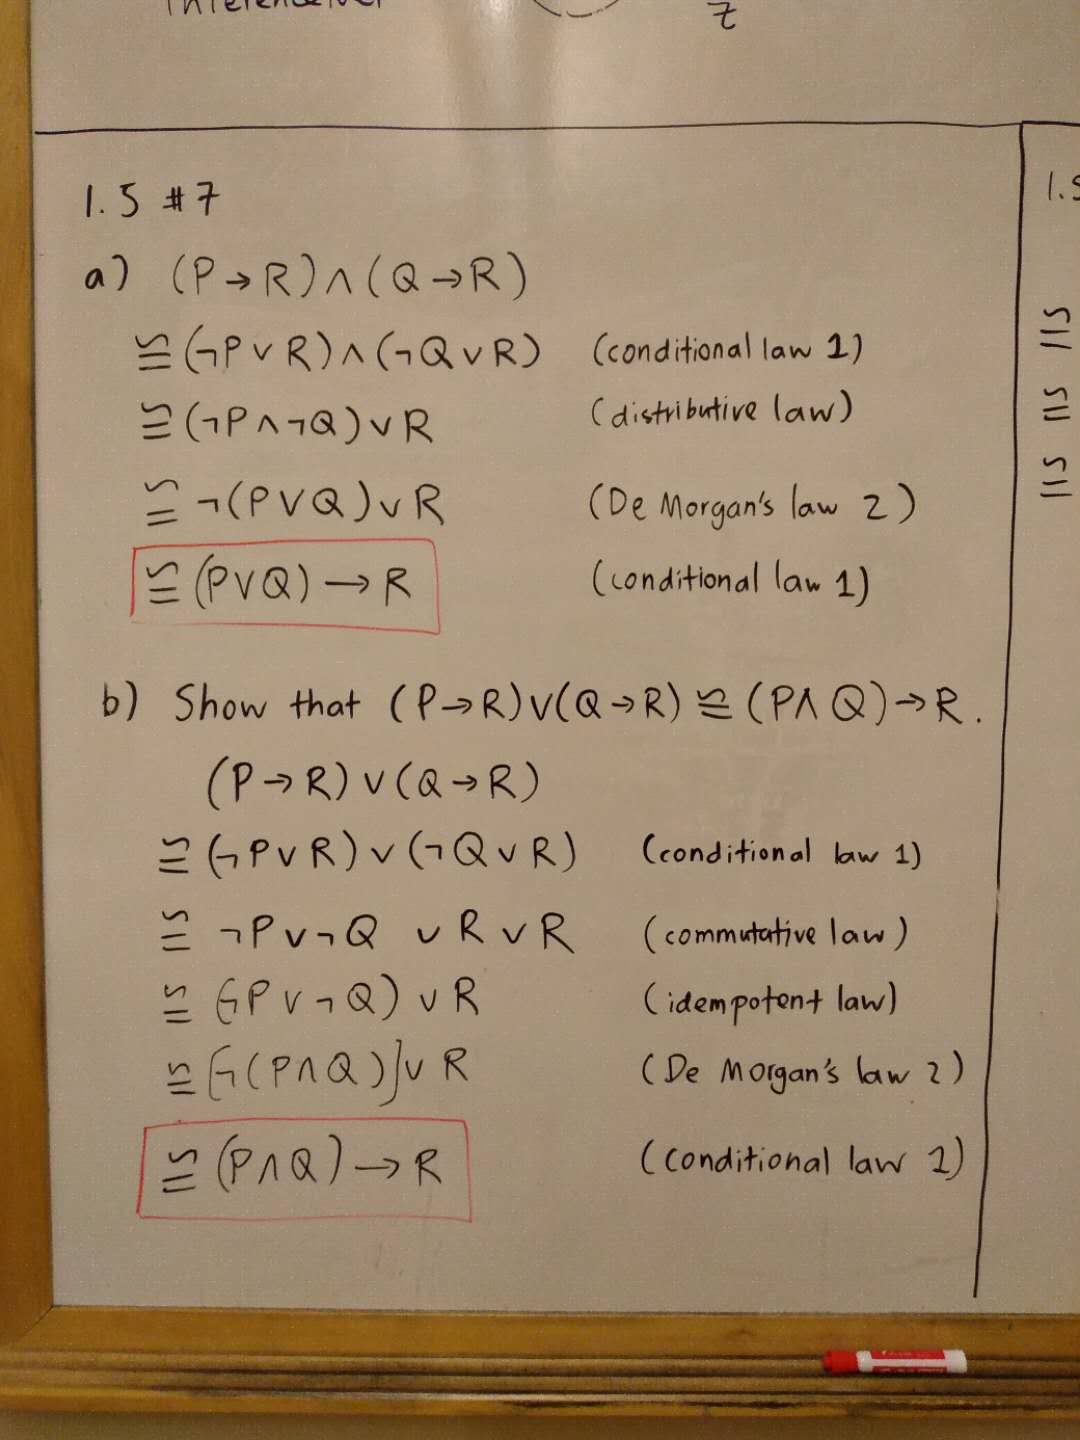 7
1.5 #7
a) (P→R)∧(Q→R)
≌(¬P∨R)∧(¬Q∨R) (conditional law 1)
≌(¬P∧¬Q)∨R (distributive law)
≌ ¬(P∨Q)∨R (De Morgan's law 2)
≌(P∨Q)→R (conditional law 1)
b) Show that (P→R)∨(Q→R)≌(P∧Q)→R.
(P→R)∨(Q→R)
≌(¬P∨R)∨(¬Q∨R) (conditional law 1)
≌ ¬P∨¬Q ∨R∨R (commutative law)
≌ (¬P∨¬Q)∨R (idempotent law)
≌ [¬(P∧Q)]∨R (De Morgan's law 2)
≌(P∧Q)→R (conditional law 1)
1.5
≌
≌
≌